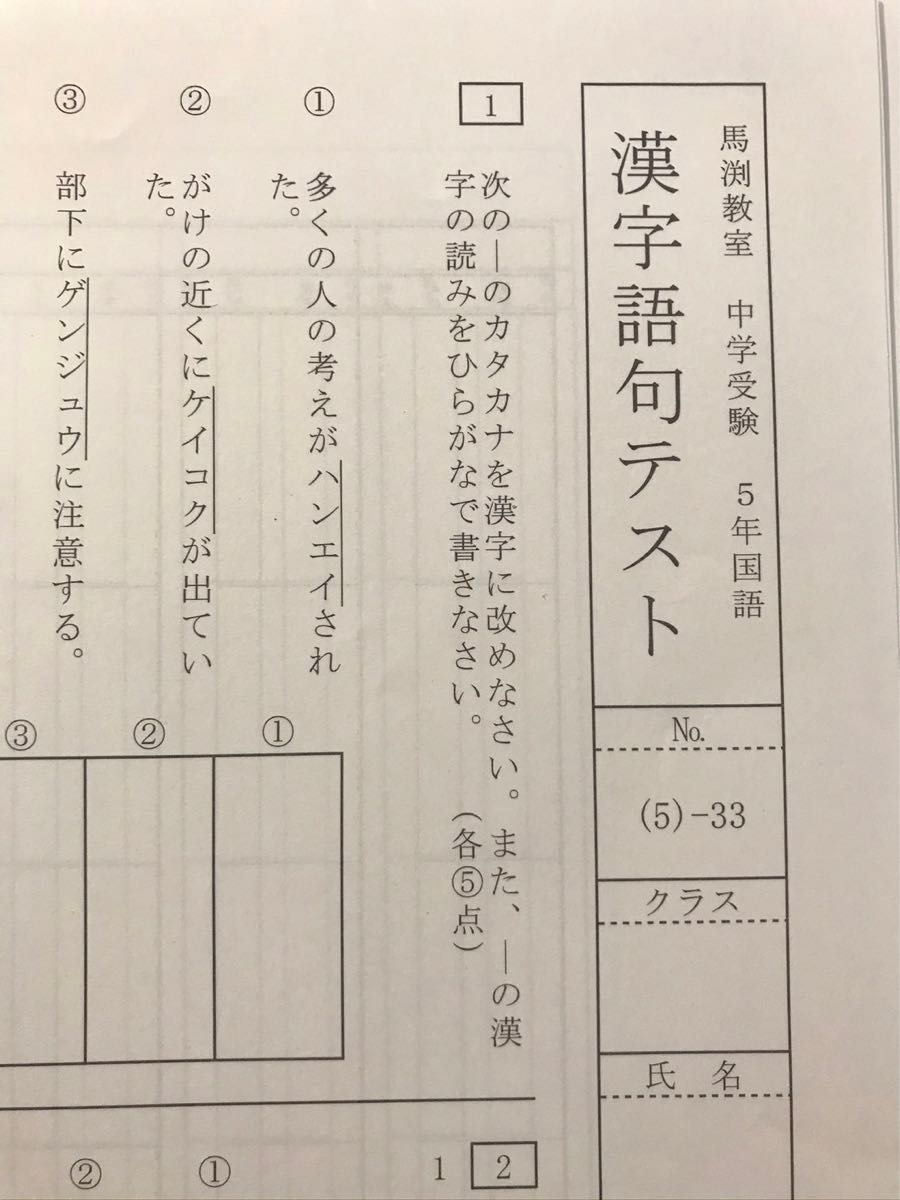 馬渕教室 中学受験 5年国語
漢字語句テスト
No.
(5)-33
クラス
氏 名
1
次の―のカタカナを漢字に改めなさい。また、―の漢
字の読みをひらがなで書きなさい。 (各⑤点)
①
多くの人の考えがハンエイされ
た。
②
がけの近くにケイコクが出てい
た。
③
部下にゲンジュウに注意する。
①
②
③
2
1
①
②